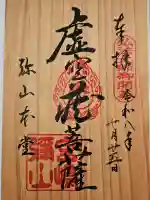 奉拝
令和八年
月廿五日
虚空蔵菩薩
弥山本堂
弥山